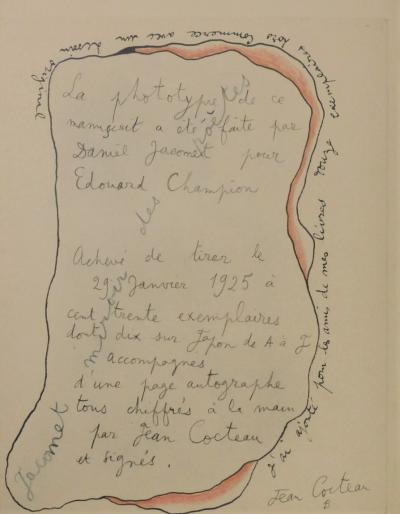 La phototypie de ce
manuscrit a été faite par
Daniel Jacomet pour
Edouard Champion
Achevé de tirer le
29 Janvier 1925 à
cent trente exemplaires
dont dix sur Japon de A à J
accompagnés
d'une page autographe
tous chiffrés à la main
par Jean Cocteau
et signés.
Jacomet miroir des poètes
J'ai ajouté pour les amis de mes livres douze exemplaires hors commerce avec un dessin original
Jean Cocteau